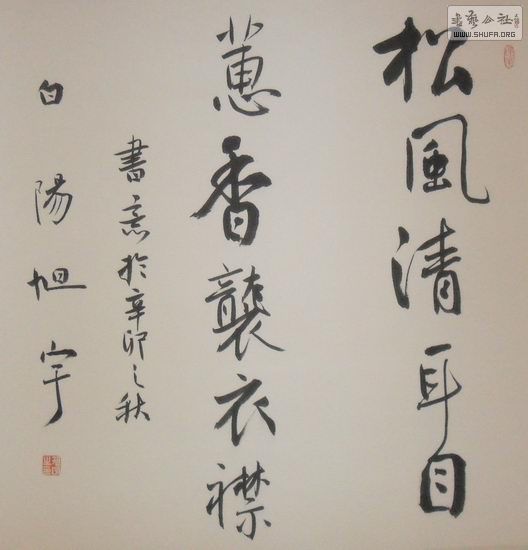 書藝公社
WWW.SHUFA.ORG
松風清耳目
蕙香襲衣襟
書意於辛卯之秋
白陽旭宇